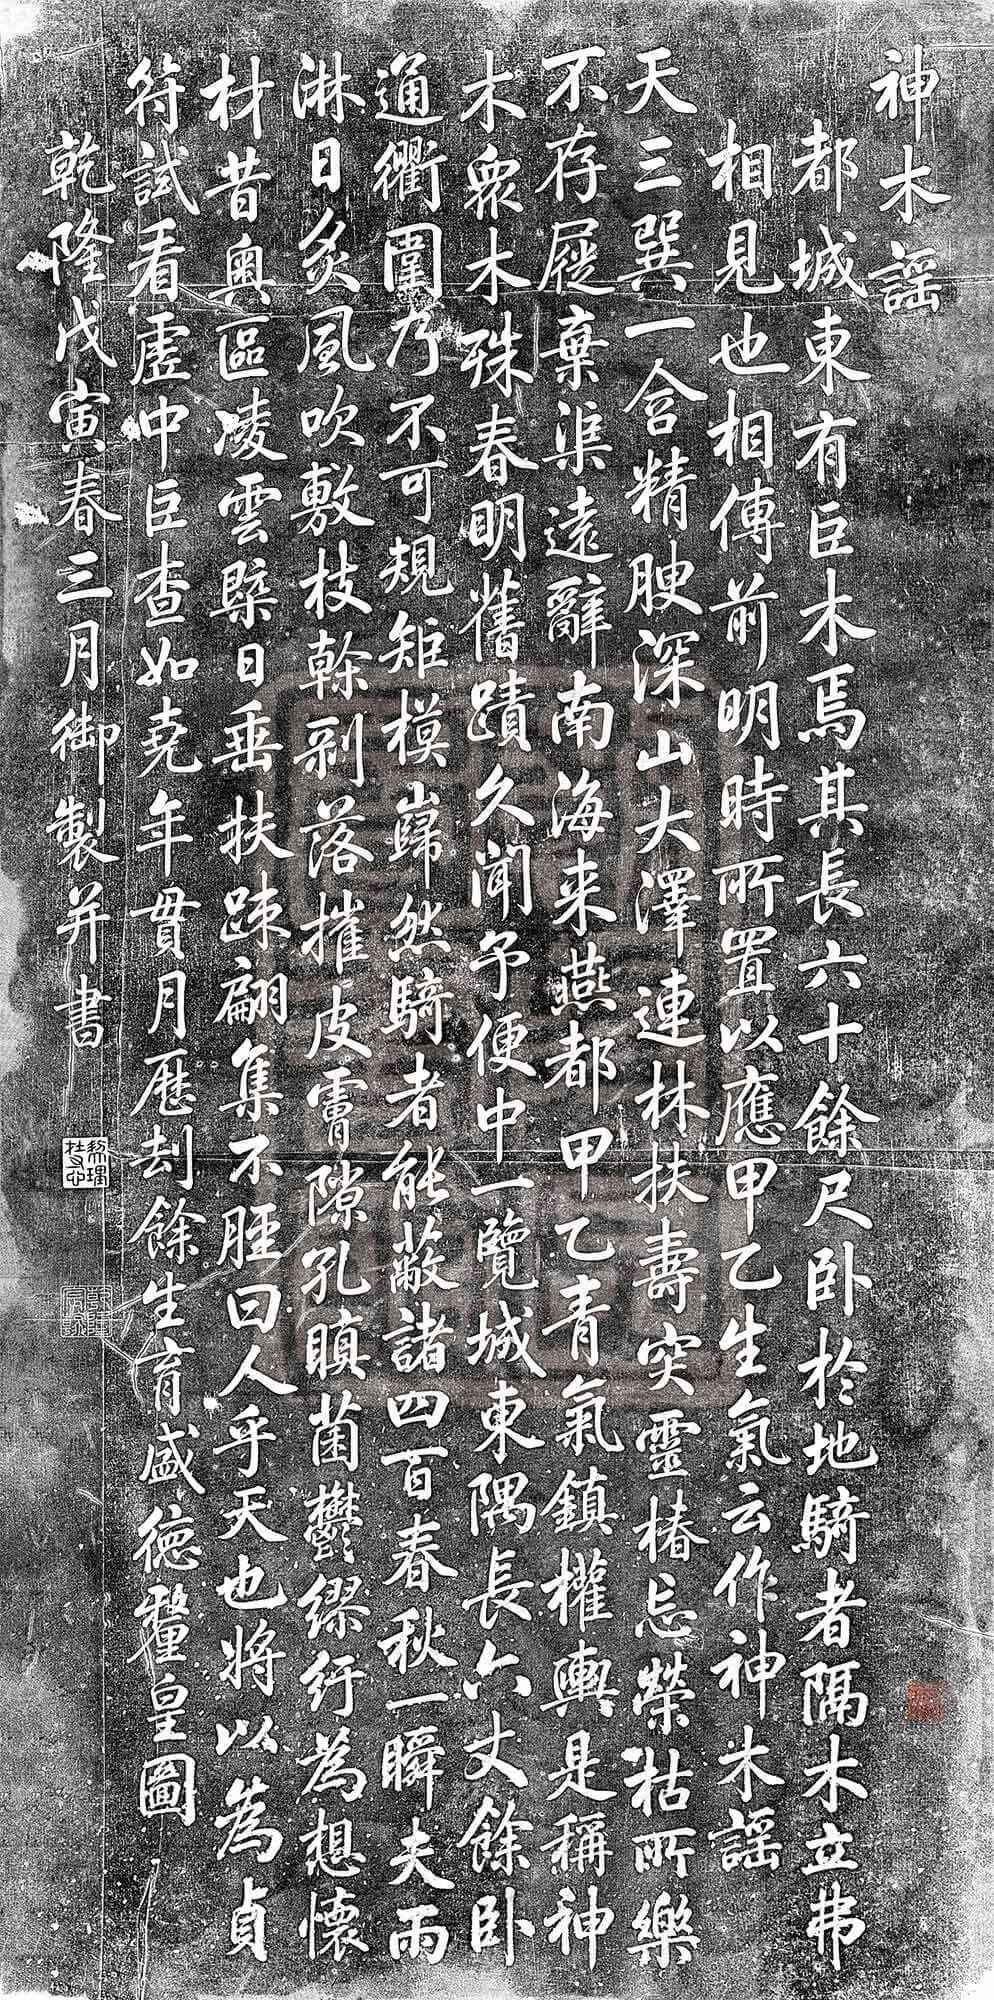 神木謡
都城東有巨木焉其長六十餘尺卧於地騎者隔木立弗
相見也相傳前明時所置以應甲乙生氣云作神木謡
天三巽一含精腴深山大澤連林扶壽突靈椿忘榮枯所樂
不存屣棄渠遠辭南海来燕都甲乙青氣鎮權輿是稱神
木衆木殊春明舊蹟久聞予便中一覽城東隅長六丈餘卧
通衢圍乃不可規矩模巋然騎者能蔽諸四百春秋一瞬夫雨
淋日炙風吹敷枝榦剥落摧皮膚隙孔瞋菌鬱繆紆為想懐
材昔奥區凌雲槩日垂扶踈翩集不脛曰人乎天也将以為貞
符試看虚中巨查如尭年貫月歴刦餘生育盛徳釐皇圖
乾隆戊寅春三月御製并書